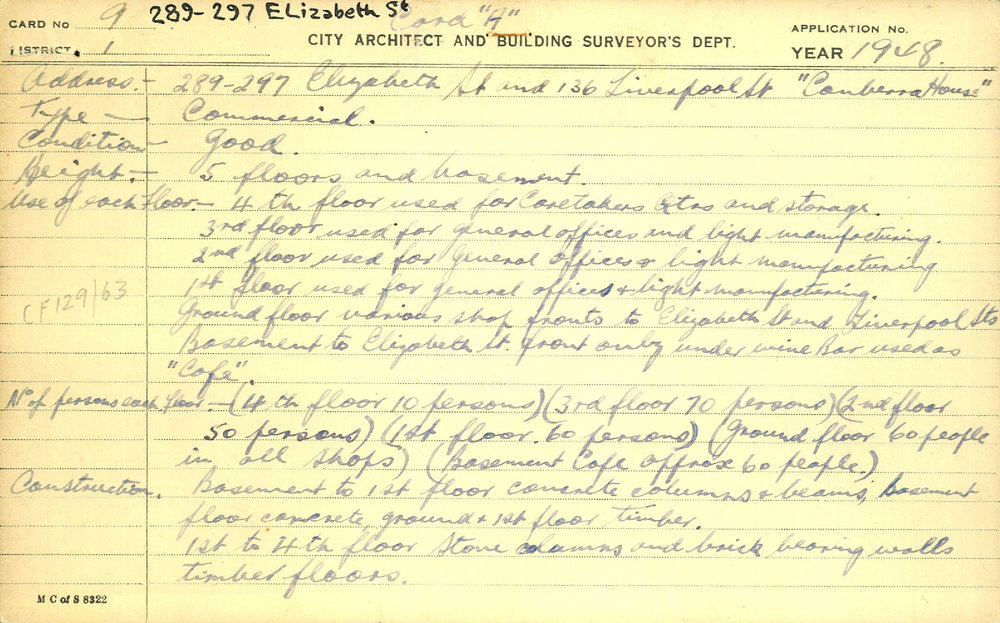 CARD No 9 289-297 ELizabeth St Card "A"
DISTRICT. 1 CITY ARCHITECT AND BUILDING SURVEYOR'S DEPT. APPLICATION No.
YEAR 1948.
Address.- 289-297 Elizabeth St and 136 Liverpool St "Canberra House"
Type - Commercial.
Condition- Good.
Height.- 5 floors and basement.
Use of each Floor.- 4th floor used for Caretakers Qtrs and storage.
3rd floor used for general offices and light manufacturing.
2nd floor used for general offices & light manufacturing
1st floor used for general offices & light manufacturing.
CF129/63
Ground floor various shop fronts to Elizabeth St and Liverpool Sts
Basement to Elizabeth St. front only under wine Bar used as
"Cafe".
No of persons each floor.- (4th floor 10 persons) (3rd floor 70 persons) (2nd floor
50 persons) (1st floor. 60 persons) (Ground floor 60 people
in all shops) (Basement Cafe approx 60 people.)
Construction. Basement to 1st floor concrete columns & beams, basement
floor concrete, ground & 1st floor timber.
1st to 4th floor stone columns and brick bearing walls
timber floors.
M C of S 8322